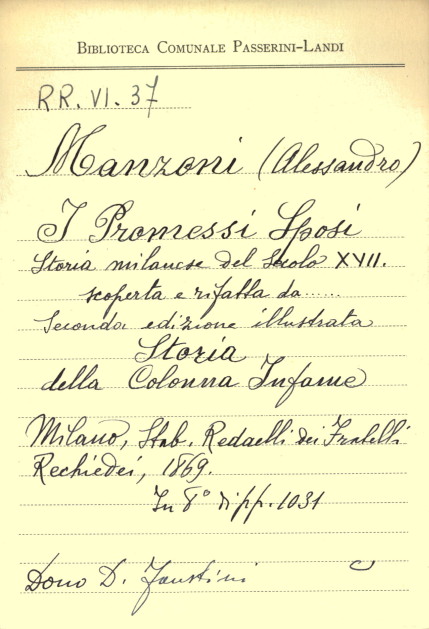 BIBLIOTECA COMUNALE PASSERINI-LANDI
RR. VI. 37
Manzoni (Alessandro)
I Promessi Sposi
Storia milanese del Secolo XVII.
scoperta e rifatta da.....
Seconda edizione illustrata
Storia
della Colonna Infame
Milano, Stab. Redaelli dei Fratelli
Rechiedei, 1869.
In 8° di pp. 1031
Dono D. Faustini